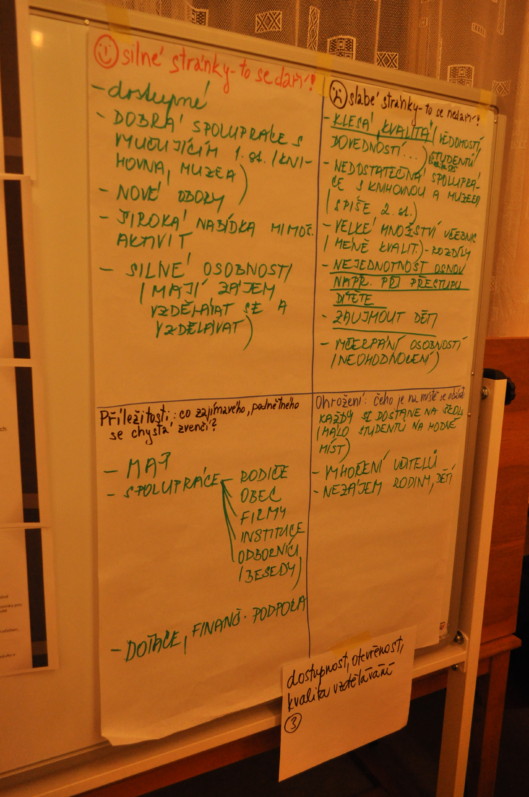 silné stránky - to se daří!
- dostupné
- DOBRÁ SPOLUPRÁCE S
VYUČUJÍCÍM 1. st. (KNI-
HOVNA, MUZEA)
- NOVÉ OBORY
- ŠIROKÁ NABÍDKA MIMOŠ.
AKTIVIT
- SILNÉ OSOBNOSTI
(MAJÍ ZÁJEM
VZDĚLÁVAT SE A
VZDĚLÁVAT)
slabé stránky - to se nedaří!
- KLESÁ KVALITA (VĚDOMOSTÍ,
DOVEDNOSTÍ...) STUDENTŮ
- NEDOSTATEČNÁ SPOLUPRÁ-
CE S KNIHOVNOU A MUZEEM
(SPÍŠE 2. st.)
- VELKÉ MNOŽSTVÍ UČEBNIC
(MÉNĚ KVALIT.) - ROZDÍLY
- NEJEDNOTNOST OSNOV
NAPŘ. PŘI PŘESTUPU
DÍTĚTE
- ZAUJMOUT DĚTI
- VYČERPÁNÍ OSOBNOSTÍ
(NEOHODNOCENÍ)
Příležitosti: co zajímavého, podnětného
se chystá zvenčí?
- MAP
- SPOLUPRÁCE
RODIČE
OBEC
FIRMY
INSTITUCE
ODBORNÍCI
(BESEDY)
- DOTACE, FINANČ. PODPORA
Ohrožení: čeho je na místě se obávat
KAŽDÝ SE DOSTANE NA ŠKOLU
(MÁLO STUDENTŮ NA HODNĚ
MÍST)
- VYHOŘENÍ UČITELŮ
- NEZÁJEM RODIN, DĚTÍ
dostupnost, otevřenost,
kvalita vzdělávání
3